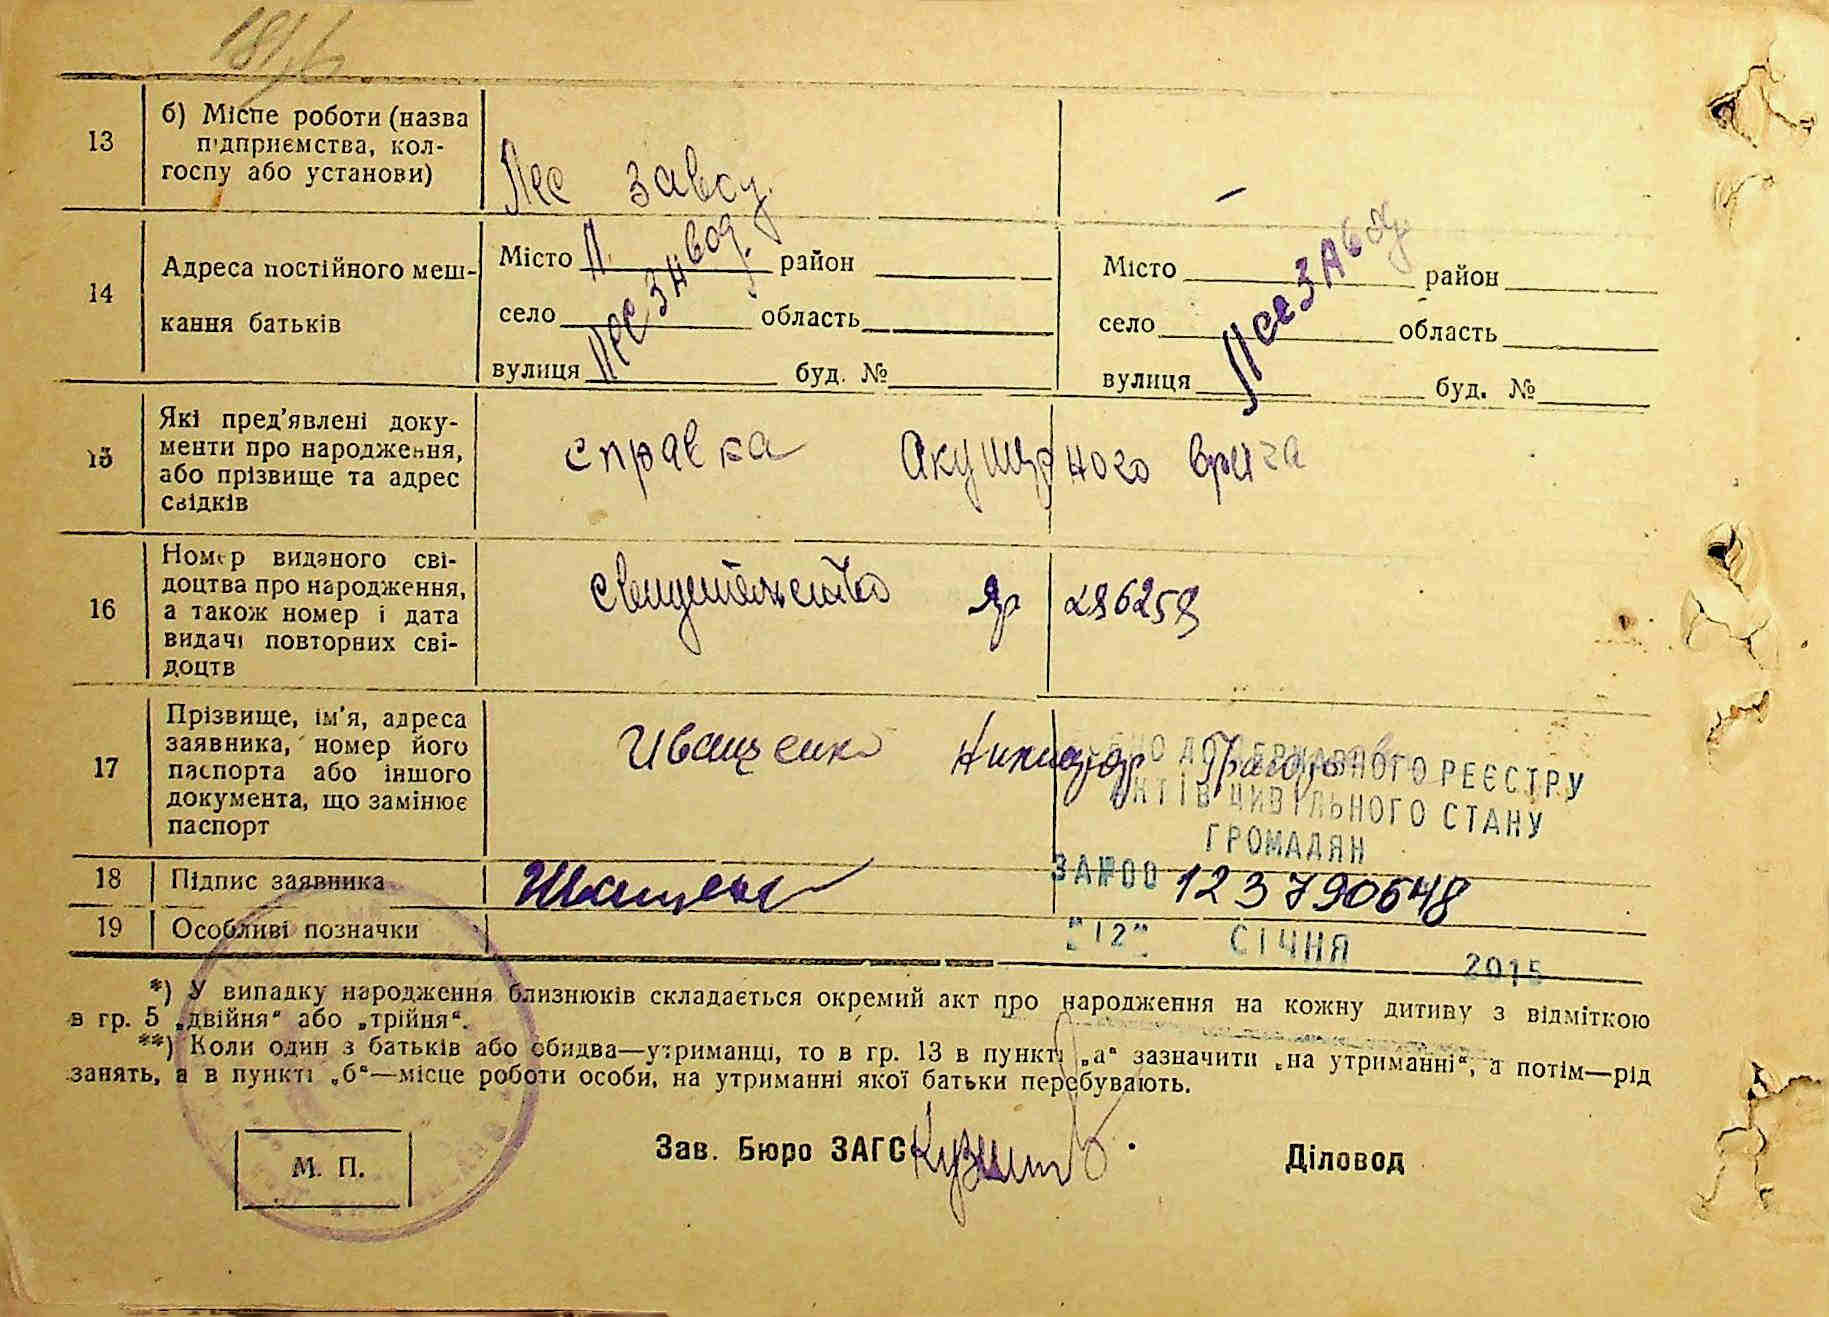 13
б) Місце роботи (назва
підприємства, кол-
госпу або установи)
Лес завод.
–
14
Адреса постійного меш-
кання батьків
Місто П. район
село область
вулиця буд. №
Лесзавод.
Місто район
село область
вулиця буд. №
Лесзавод.
15
Які пред'явлені доку-
менти про народження,
або прізвище та адрес
свідків
справка Акушерного врача
16
Номер виданого сві-
доцтва про народження,
а також номер і дата
видачі повторних сві-
доцтв
свидетельство
17
Прізвище, ім'я, адреса
заявника, номер його
паспорта або іншого
документа, що замінює
паспорт
Иващенко
ДО ДЕРЖАВНОГО РЕЄСТРУ
АКТІВ ЦИВІЛЬНОГО СТАНУ
ГРОМАДЯН
ЗА №00 123790648
"12" СІЧНЯ 2015
18
Підпис заявника
Иващенко
19
Особливі позначки
*) У випадку народження близнюків складається окремий акт про народження на кожну дитину з відміткою
в гр. 5 „двійня" або „трійня".
**) Коли один з батьків або обидва—утриманці, то в гр. 13 в пункті „а" зазначити „на утриманні", а потім—рід
занять, а в пункті „б"—місце роботи особи, на утриманні якої батьки перебувають.
М. П.
Зав. Бюро ЗАГС
Діловод